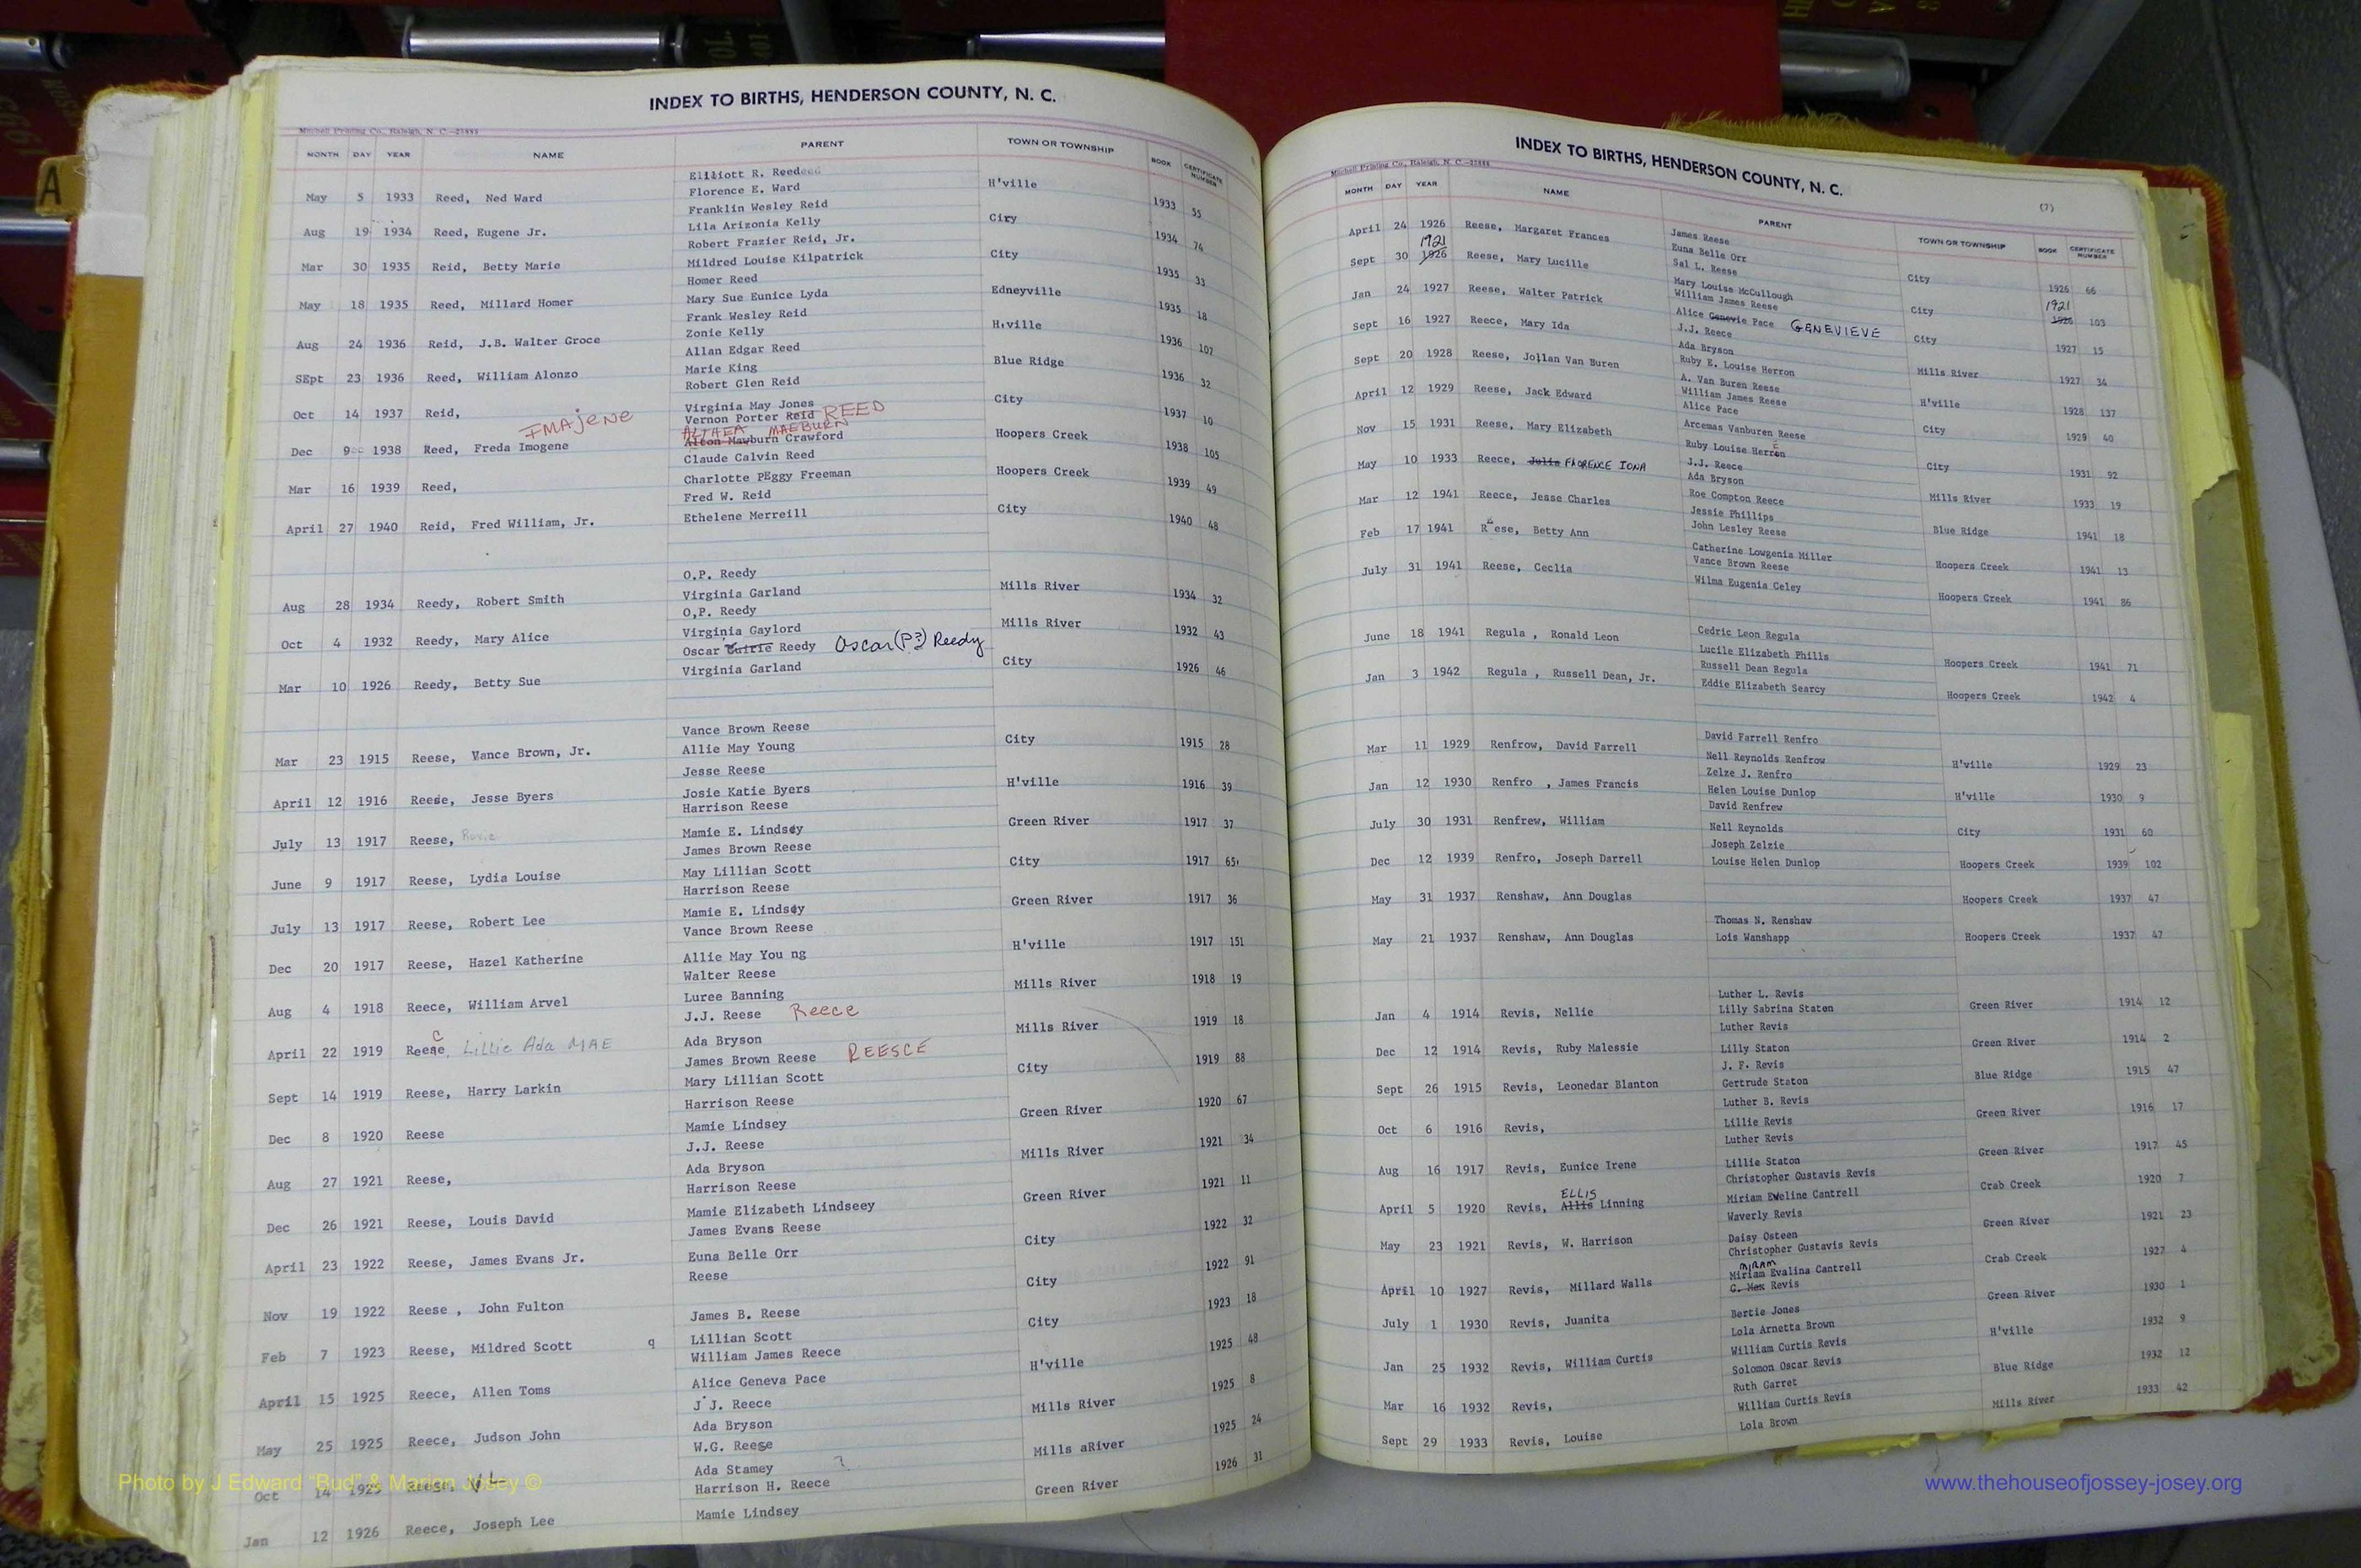 INDEX TO BIRTHS, HENDERSON COUNTY, N. C.
Mitchell Printing Co., Raleigh, N. C.—23888
MONTH DAY YEAR NAME PARENT TOWN OR TOWNSHIP BOOK CERTIFICATE NUMBER
Elliott R. Reed
May 5 1933 Reed, Ned Ward Florence E. Ward H'ville 1933 55
Franklin Wesley Reid
Aug 19 1934 Reed, Eugene Jr. Lila Arizonia Kelly City 1934 74
Robert Frazier Reid, Jr.
Mar 30 1935 Reid, Betty Marie Mildred Louise Kilpatrick City 1935 33
Homer Reed
May 18 1935 Reed, Millard Homer Mary Sue Eunice Lyda Edneyville 1935 18
Frank Wesley Reid
Aug 24 1936 Reid, J.B. Walter Groce Zonie Kelly H'ville 1936 107
Allan Edgar Reed
SEpt 23 1936 Reed, William Alonzo Marie King Blue Ridge 1936 32
Robert Glen Reid
Oct 14 1937 Reid, Virginia May Jones City 1937 10
Vernon Porter Reid REED
IMAJENE ALTHEA MAEBURN
Dec 9 1938 Reed, Freda Imogene Alton Mayburn Crawford Hoopers Creek 1938 105
Claude Calvin Reed
Mar 16 1939 Reed, Charlotte PEggy Freeman Hoopers Creek 1939 49
Fred W. Reid
April 27 1940 Reid, Fred William, Jr. Ethelene Merreill City 1940 48
O.P. Reedy
Aug 28 1934 Reedy, Robert Smith Virginia Garland Mills River 1934 32
O,P. Reedy
Oct 4 1932 Reedy, Mary Alice Virginia Gaylord Mills River 1932 43
Oscar Reedy Oscar (P?) Reedy
Mar 10 1926 Reedy, Betty Sue Virginia Garland City 1926 46
Vance Brown Reese
Mar 23 1915 Reese, Vance Brown, Jr. Allie May Young City 1915 28
Jesse Reese
April 12 1916 Reese, Jesse Byers Josie Katie Byers H'ville 1916 39
Harrison Reese
July 13 1917 Reese, Mamie E. Lindsey Green River 1917 37
James Brown Reese
June 9 1917 Reese, Lydia Louise May Lillian Scott City 1917 65
Harrison Reese
July 13 1917 Reese, Robert Lee Mamie E. Lindsey Green River 1917 36
Vance Brown Reese
Dec 20 1917 Reese, Hazel Katherine Allie May You ng H'ville 1917 151
Walter Reese
Aug 4 1918 Reece, William Arvel Luree Banning Mills River 1918 19
J.J. Reese Reece
C
April 22 1919 Reese, Lillie Ada MAE Ada Bryson Mills River 1919 18
James Brown Reese REESCE
Sept 14 1919 Reese, Harry Larkin Mary Lillian Scott City 1919 88
Harrison Reese
Dec 8 1920 Reese Mamie Lindsey Green River 1920 67
J.J. Reese
Aug 27 1921 Reese, Ada Bryson Mills River 1921 34
Harrison Reese
Dec 26 1921 Reese, Louis David Mamie Elizabeth Lindseey Green River 1921 11
James Evans Reese
April 23 1922 Reese, James Evans Jr. Euna Belle Orr City 1922 32
Reese
Nov 19 1922 Reese , John Fulton City 1922 91
James B. Reese
Feb 7 1923 Reese, Mildred Scott q Lillian Scott City 1923 18
William James Reece
April 15 1925 Reece, Allen Toms Alice Geneva Pace H'ville 1925 48
J'J. Reece
May 25 1925 Reece, Judson John Ada Bryson Mills River 1925 8
W.G. Reese
Oct 14 1925 Reese Ada Stamey ? Mills aRiver 1925 24
Harrison H. Reece
Jan 12 1926 Reece, Joseph Lee Mamie Lindsey Green River 1926 31
Photo by J Edward "Bud" & Marion Josey ©
INDEX TO BIRTHS, HENDERSON COUNTY, N. C.
Mitchell Printing Co., Raleigh, N. C.—23888
(7)
MONTH DAY YEAR NAME PARENT TOWN OR TOWNSHIP BOOK CERTIFICATE NUMBER
James Reese
April 24 1926 Reese, Margaret Frances Euna Belle Orr City 1926 66
1921 Sal L. Reese 1921
Sept 30 1926 Reese, Mary Lucille Mary Louise McCullough City 1926 103
William James Reese
Jan 24 1927 Reese, Walter Patrick Alice Genevie Pace GENEVIEVE City 1927 15
J.J. Reece
Sept 16 1927 Reece, Mary Ida Ada Bryson Mills River 1927 34
Ruby E. Louise Herron
Sept 20 1928 Reese, Jollan Van Buren A. Van Buren Reese H'ville 1928 137
William James Reese
April 12 1929 Reese, Jack Edward Alice Pace City 1929 40
Arcemas Vanburen Reese
Nov 15 1931 Reese, Mary Elizabeth Ruby Louise Herron City 1931 92
J.J. Reece
May 10 1933 Reece, Julia FlORENCE IONA Ada Bryson Mills River 1933 19
Roe Compton Reece
Mar 12 1941 Reece, Jesse Charles Jessie Phillips Blue Ridge 1941 18
John Lesley Reese
Feb 17 1941 Reese, Betty Ann Catherine Lowgenia Miller Hoopers Creek 1941 13
Vance Brown Reese
July 31 1941 Reese, Ceclia Wilma Eugenia Celey Hoopers Creek 1941 86
Cedric Leon Regula
June 18 1941 Regula , Ronald Leon Lucile Elizabeth Phills Hoopers Creek 1941 71
Russell Dean Regula
Jan 3 1942 Regula , Russell Dean, Jr. Eddie Elizabeth Searcy Hoopers Creek 1942 4
David Farrell Renfro
Mar 11 1929 Renfrow, David Farrell Nell Reynolds Renfrow H'ville 1929 23
Zelze J. Renfro
Jan 12 1930 Renfro , James Francis Helen Louise Dunlop H'ville 1930 9
David Renfrew
July 30 1931 Renfrew, William Nell Reynolds City 1931 60
Joseph Zelzie
Dec 12 1939 Renfro, Joseph Darrell Louise Helen Dunlop Hoopers Creek 1939 102
May 31 1937 Renshaw, Ann Douglas Hoopers Creek 1937 47
Thomas N. Renshaw
May 21 1937 Renshaw, Ann Douglas Lois Wanshapp Hoopers Creek 1937 47
Luther L. Revis
Jan 4 1914 Revis, Nellie Lilly Sabrina Staton Green River 1914 12
Luther Revis
Dec 12 1914 Revis, Ruby Malessie Lilly Staton Green River 1914 2
J. F. Revis
Sept 26 1915 Revis, Leonedar Blanton Gertrude Staton Blue Ridge 1915 47
Luther B. Revis
Oct 6 1916 Revis, Lillie Revis Green River 1916 17
Luther Revis
Aug 16 1917 Revis, Eunice Irene Lillie Staton Green River 1917 45
Christopher Gustavis Revis
ELLIS
April 5 1920 Revis, Allis Linning Miriam Eweline Cantrell Crab Creek 1920 7
Waverly Revis
May 23 1921 Revis, W. Harrison Daisy Osteen Green River 1921 23
Christopher Gustavis Revis
MIRAM
April 10 1927 Revis, Millard Walls Miriam Evalina Cantrell Crab Creek 1927 4
G. Mex Revis
July 1 1930 Revis, Juanita Bertie Jones Green River 1930 1
Lola Arnetta Brown
Jan 25 1932 Revis, William Curtis William Curtis Revis H'ville 1932 9
Solomon Oscar Revis
Mar 16 1932 Revis, Ruth Garret Blue Ridge 1932 12
William Curtis Revis
Sept 29 1933 Revis, Louise Lola Brown Mills River 1933 42
www.thehouseofjossey-josey.org
A